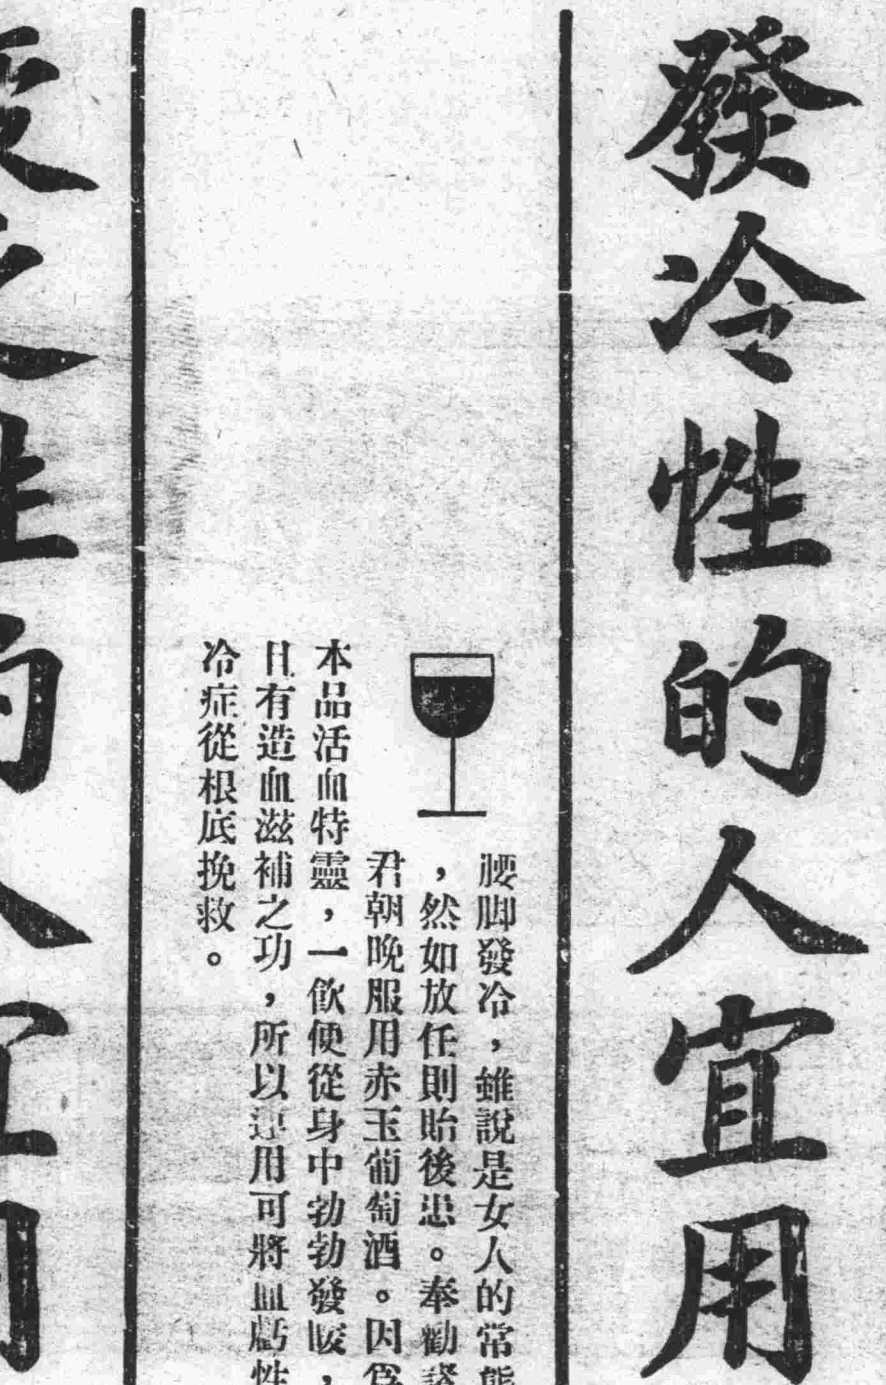 發冷性的人宜用
腰脚發冷，雖說是女人的常態
，然如放任則貽後患。奉勸諸
君朝晚服用赤玉葡萄酒。因爲
本品活血特靈，一飲便從身中勃勃發暖，
且有造血滋補之功，所以連用可將血虧性
冷症從根底挽救。
性的人宜用